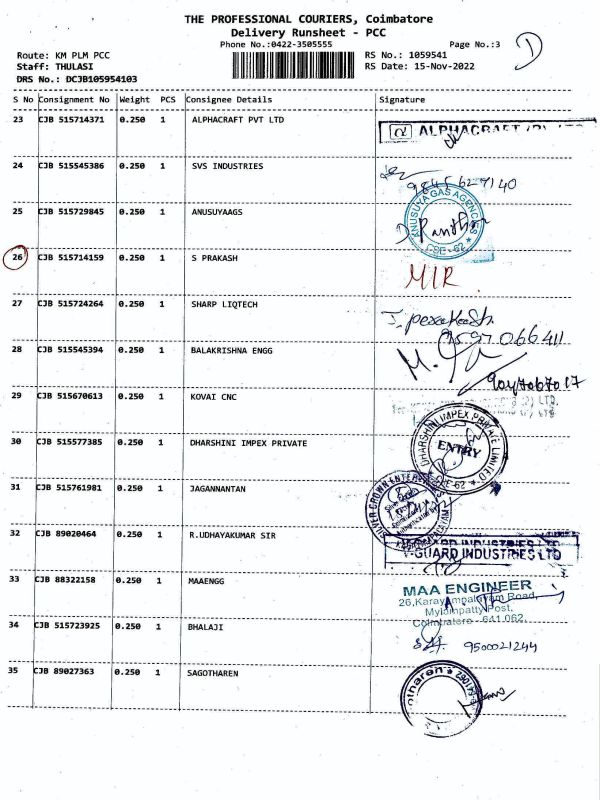 THE PROFESSIONAL COURIERS, Coimbatore
Delivery Runsheet - PCC
Phone No.:0422-3505555 Page No.:3
Route: KM PLM PCC RS No.: 1059541
Staff: THULASI RS Date: 15-Nov-2022
DRS No.: DCJB105954103
S No Consignment No Weight PCS Consignee Details Signature
23 CJB 515714371 0.250 1 ALPHACRAFT PVT LTD ALPHACRAFT (P) LTD
24 CJB 515545386 0.250 1 SVS INDUSTRIES
25 CJB 515729845 0.250 1 ANUSUYAAGS ANUSUYA GAS AGENCIES CBE-62
26 CJB 515714159 0.250 1 S PRAKASH MIR.
27 CJB 515724264 0.250 1 SHARP LIQTECH
28 CJB 515545394 0.250 1 BALAKRISHNA ENGG
29 CJB 515670613 0.250 1 KOVAI CNC (P) LTD.
30 CJB 515577385 0.250 1 DHARSHINI IMPEX PRIVATE DHARSHINI IMPEX PRIVATE LIMITED ENTRY CBE-62
31 CJB 515761981 0.250 1 JAGANNANTAN SILVER CROWN ENTER
32 CJB 89020464 0.250 1 R.UDHAYAKUMAR SIR V-GUARD INDUSTRIES LTD
33 CJB 88322158 0.250 1 MAAENGG MAA ENGINEER
26,Karayampalayam Road,
Mylampatty Post,
Coimbatore - 641 062.
34 CJB 515723925 0.250 1 BHALAJI 9500021244
35 CJB 89027363 0.250 1 SAGOTHAREN otharen 641062